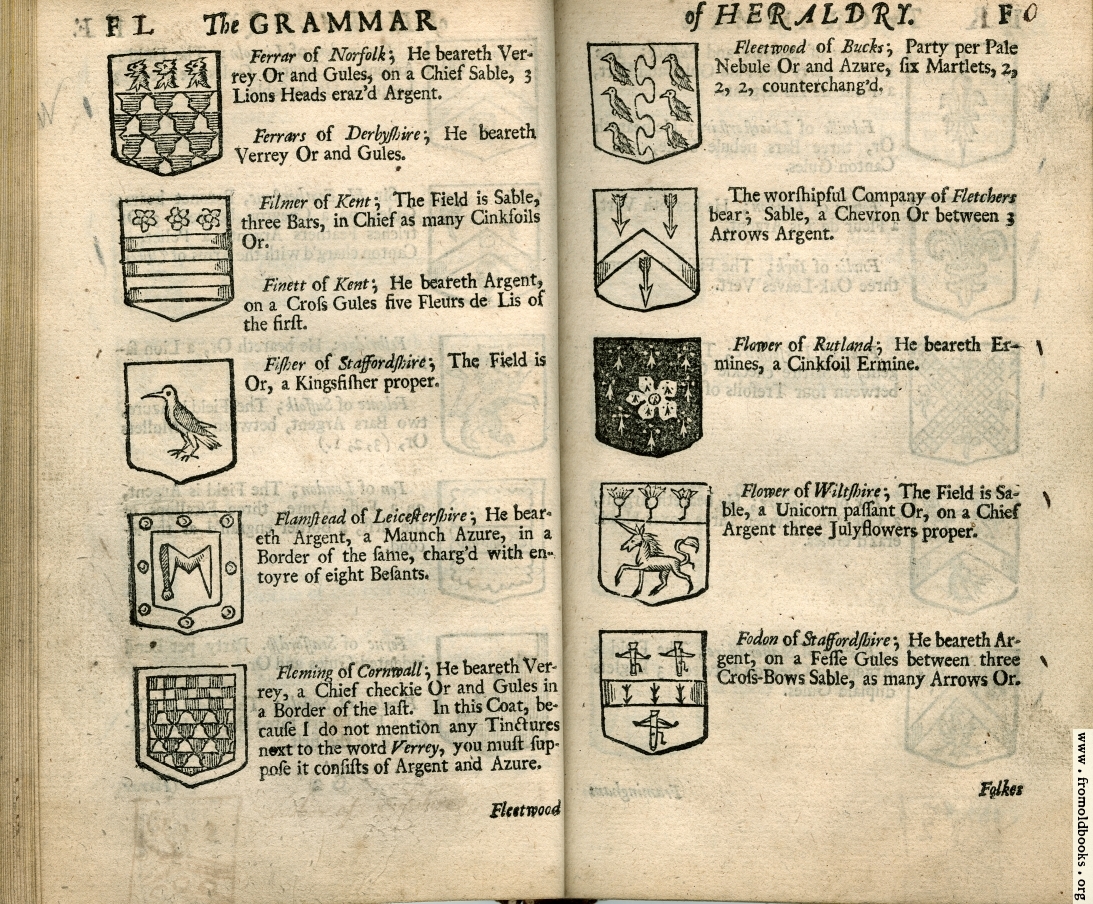 F L The GRAMMAR
Ferrar of Norfolk; He beareth Ver-
rey Or and Gules, on a Chief Sable, 3
Lions Heads eraz'd Argent.
Ferrars of Derbyſhire; He beareth
Verrey Or and Gules.
Filmer of Kent; The Field is Sable,
three Bars, in Chief as many Cinkfoils
Or.
Finett of Kent; He beareth Argent,
on a Croſs Gules five Fleurs de Lis of
the firſt.
Fiſher of Staffordſhire; The Field is
Or, a Kingsfiſher proper.
Flamſtead of Leiceſterſhire; He bear-
eth Argent, a Maunch Azure, in a
Border of the ſame, charg'd with en-
toyre of eight Beſants.
Fleming of Cornwall; He beareth Ver-
rey, a Chief checkie Or and Gules in
a Border of the laſt. In this Coat, be-
cauſe I do not mention any Tinctures
next to the word Verrey, you muſt ſup-
poſe it conſiſts of Argent and Azure.
Fleetwood
of HERALDRY. F O
Fleetwood of Bucks; Party per Pale
Nebule Or and Azure, ſix Martlets, 2,
2, 2, counterchang'd.
The worſhipful Company of Fletchers
bear; Sable, a Chevron Or between 3
Arrows Argent.
Flower of Rutland; He beareth Er-
mines, a Cinkfoil Ermine.
Flower of Wiltſhire; The Field is Sa-
ble, a Unicorn paſſant Or, on a Chief
Argent three Julyflowers proper.
Fodon of Staffordſhire; He beareth Ar-
gent, on a Feſſe Gules between three
Croſs-Bows Sable, as many Arrows Or.
Folkes
www.fromoldbooks.org